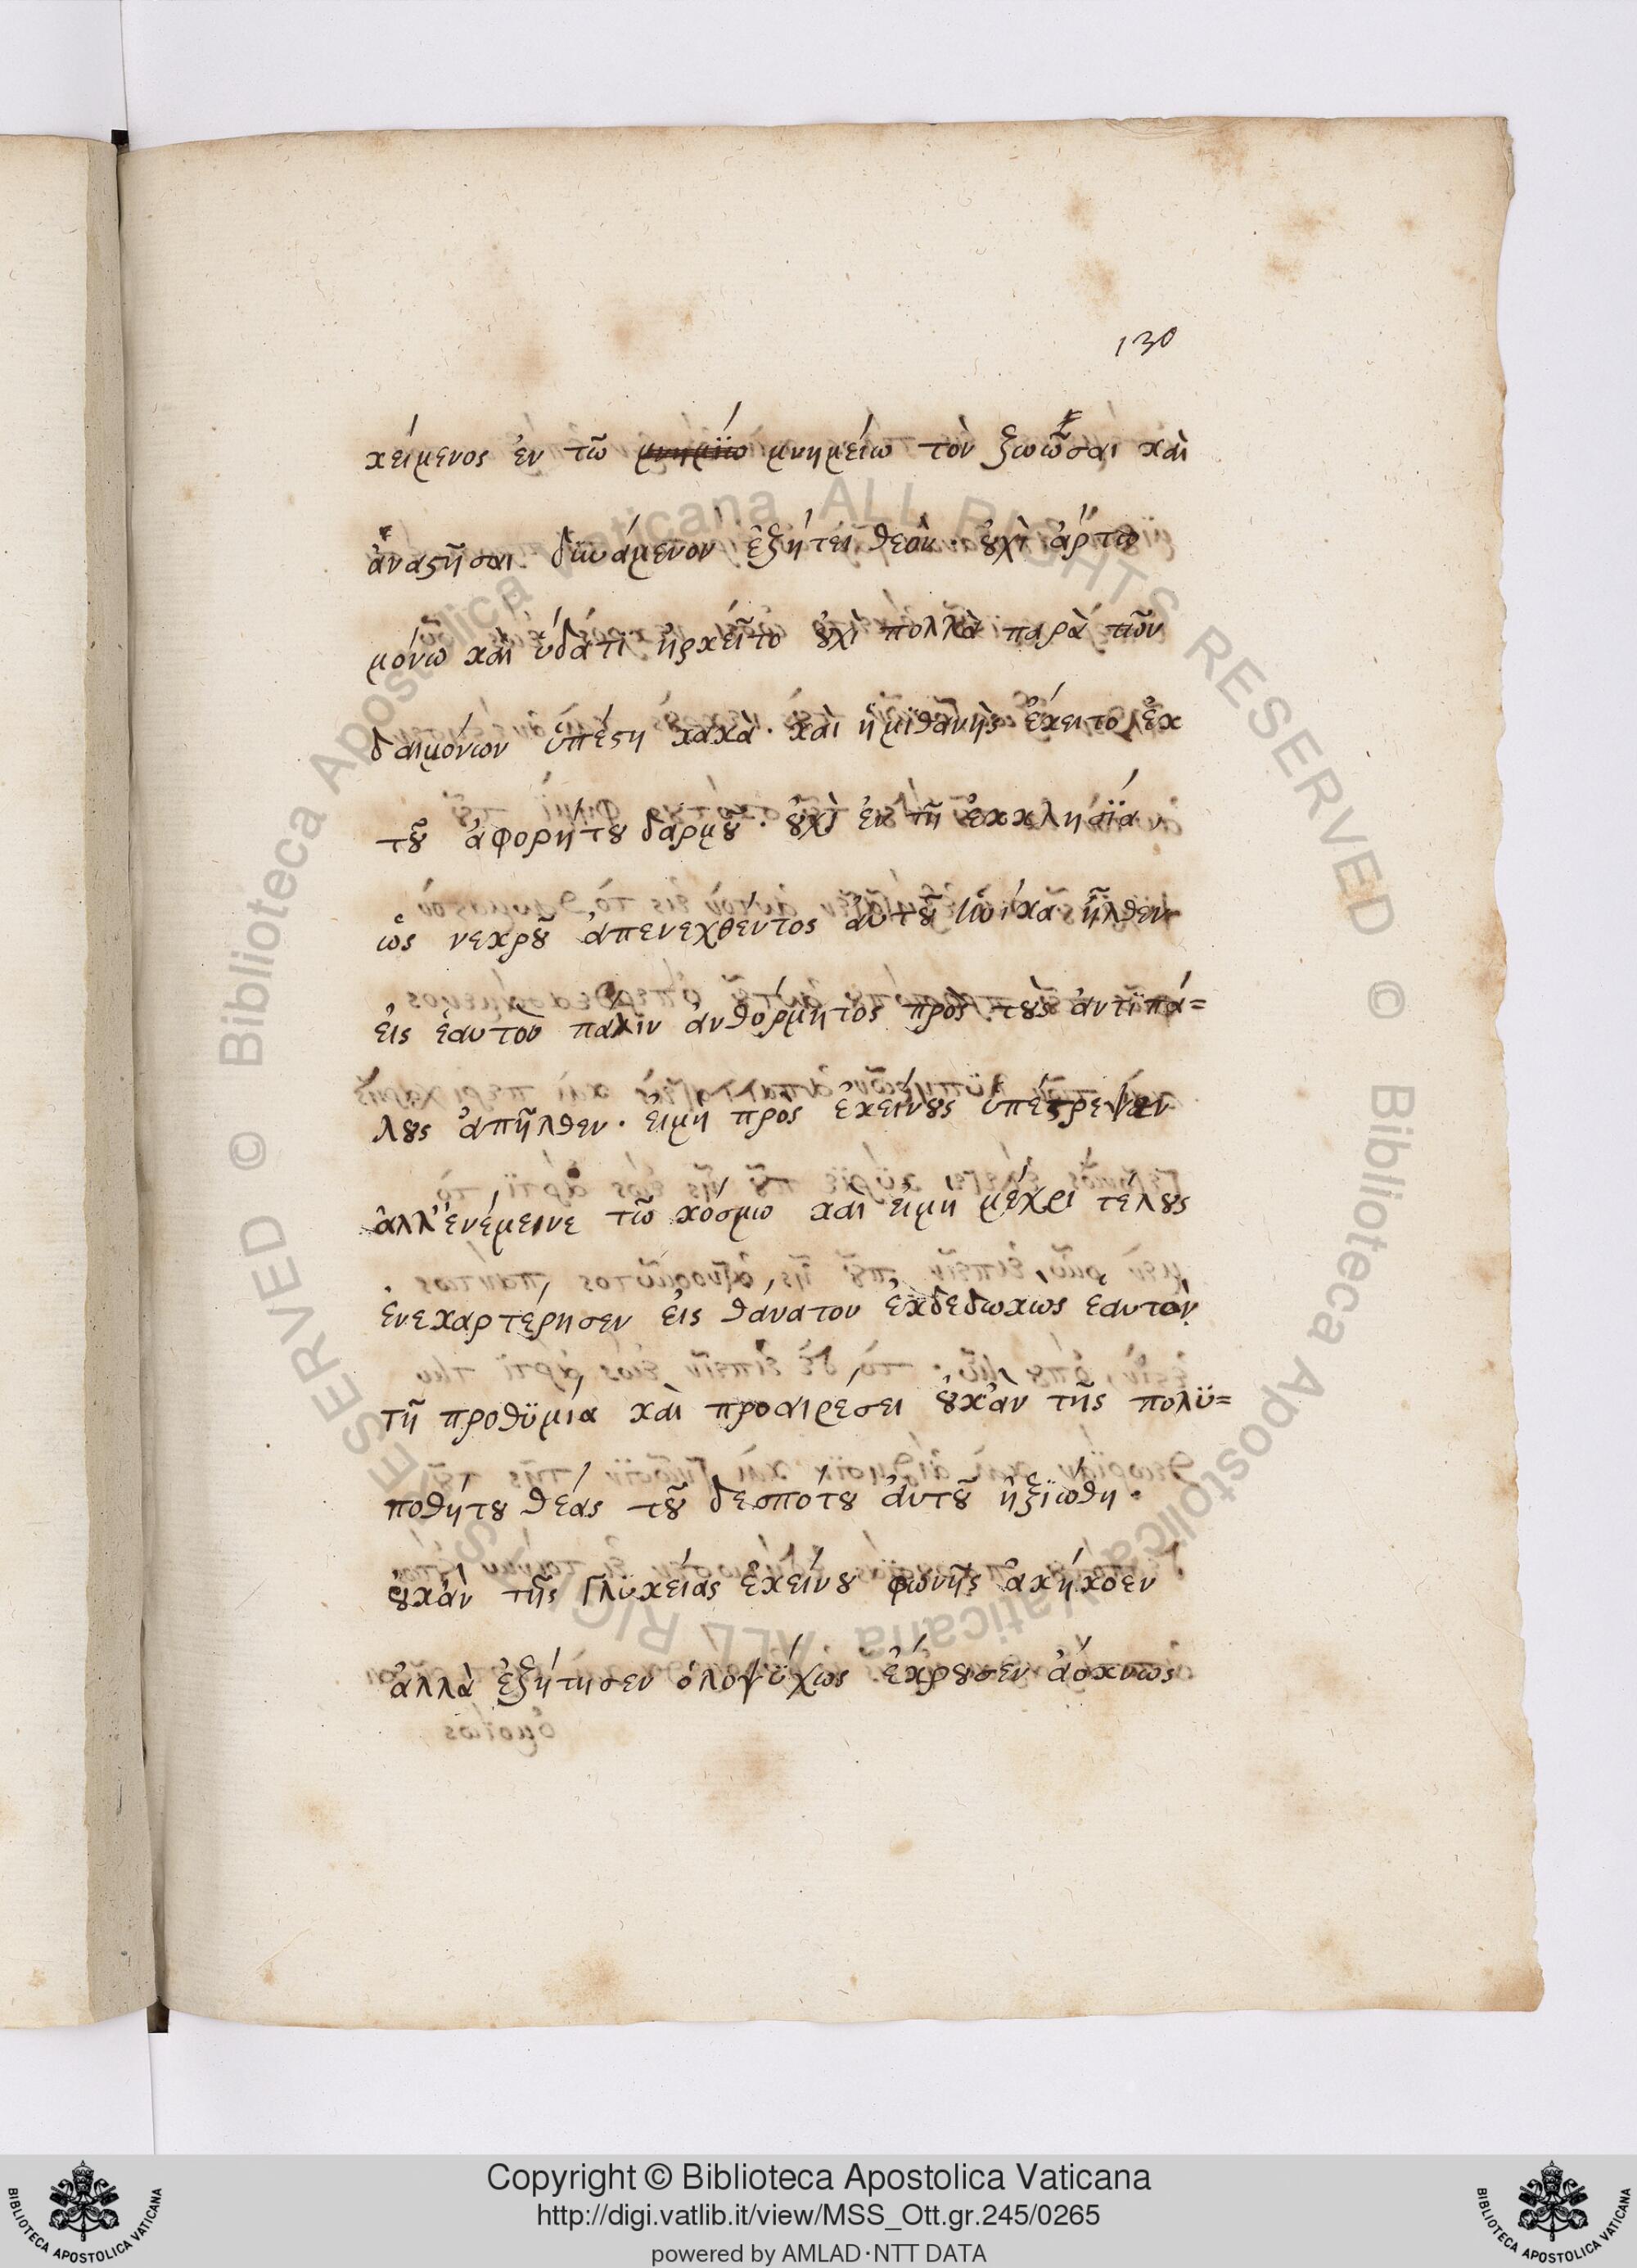 130
κείμενος ἐν τῶ μνημΐω μνημείω τὸν ζωῶσαι καὶ
ἀναστῆσαι δϋνάμενον ἐζήτει θεόν· οὐχὶ ἄρτω
μόνω καὶ ὕδάτι ἠρκεῖτο οὐχὶ πολλὰ παρὰ τῶν
δαιμόνων ὑπέστη κακὰ· καὶ ἡμϊθανὴς ἔκειτο ἐκ
τοῦ ἀφορήτου δαρμοῦ· οὐχὶ ἐν τῆ ἐκκλησΐα
ὡς νεκροῦ ἀπενεχθέντος αὐτοῦ ἡνίκα ἦλθεν
εἰς ἑαυτὸν παλιν ἀυθόρμητος πρὸς τοὺς ἀντϊπά=
λους ἀπῆλθεν· εἰμη πρὸς ἐκείνους ὑπέστρεψεν
ἀλλ' ἐνέμεινε τῶ κόσμω καὶ εἰμη μέχρι τέλους
ἐνεκαρτέρησεν εἰς θάνατον ἐκδεδωκως εαυτὸν
τῆ προθϋμία καὶ προαιρέσει οὐκἀν τῆς πολϋ=
ποθήτου θέας τοῦ δεσπότου αὐτοῦ ἠξϊώθη·
οὐκἀν τῆς γλϋκείας ἐκείνου φωνῆς ἀκήκοεν
ἀλλὰ ἐζήτησεν ὁλοψΰχως ἔκρουσεν ἀόκνως
Copyright © Biblioteca Apostolica Vaticana
http://digi.vatlib.it/view/MSS_Ott.gr.245/0265
powered by AMLAD·NTT DATA
BIBLIOTECA APOSTOLICA VATICANA
BIBLIOTECA APOSTOLICA VATICANA
© Biblioteca Apostolica Vaticana ALL RIGHTS RESERVED
© Biblioteca Apostolica Vaticana ALL RIGHTS RESERVED